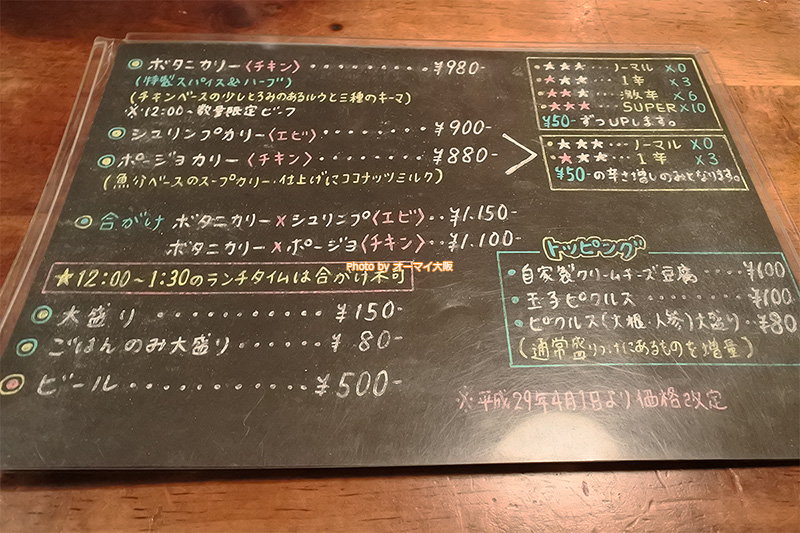 ボタニカリー〈チキン〉・・・・・・・・¥980-
(特製スパイス&ハーブ)
(チキンベースの少しとろみのあるルウと三種のキーマ)
※12:00〜数量限定ビーフ
シュリンプカリー〈エビ〉・・・・・・・・¥900-
ポージョカリー〈チキン〉・・・・・・・・¥880-
(魚介ベースのスープカリー、仕上げにココナッツミルク)
合がけ ボタニカリー×シュリンプ〈エビ〉・・¥1.150-
ボタニカリー×ポージョ〈チキン〉・・¥1.100-
★12:00〜1:30のランチタイムは合がけ不可
大盛り・・・・・・・・・・¥150-
ごはんのみ大盛り・・・・・・¥80-
ビール・・・・・・・・・・・¥500-
・★★★・・・ノーマル ×0
・★★★・・・1辛 ×3
・★★★・・・激辛 ×6
・★★★・・・SUPER×10
¥50-ずつUPします。
・★★★・・・ノーマル ×0
・★★★・・・1辛 ×3
¥50-の辛さ増しのみとなります。
トッピング
・自家製クリームチーズ豆腐・・・・¥100
・玉子ピクルス・・・・・・・・¥100-
・ピクルス(大根・人参)大盛り・・¥80
(通常盛りつけにあるものを増量)
※平成29年4月1日より価格改定
Photo by オーマイ大阪